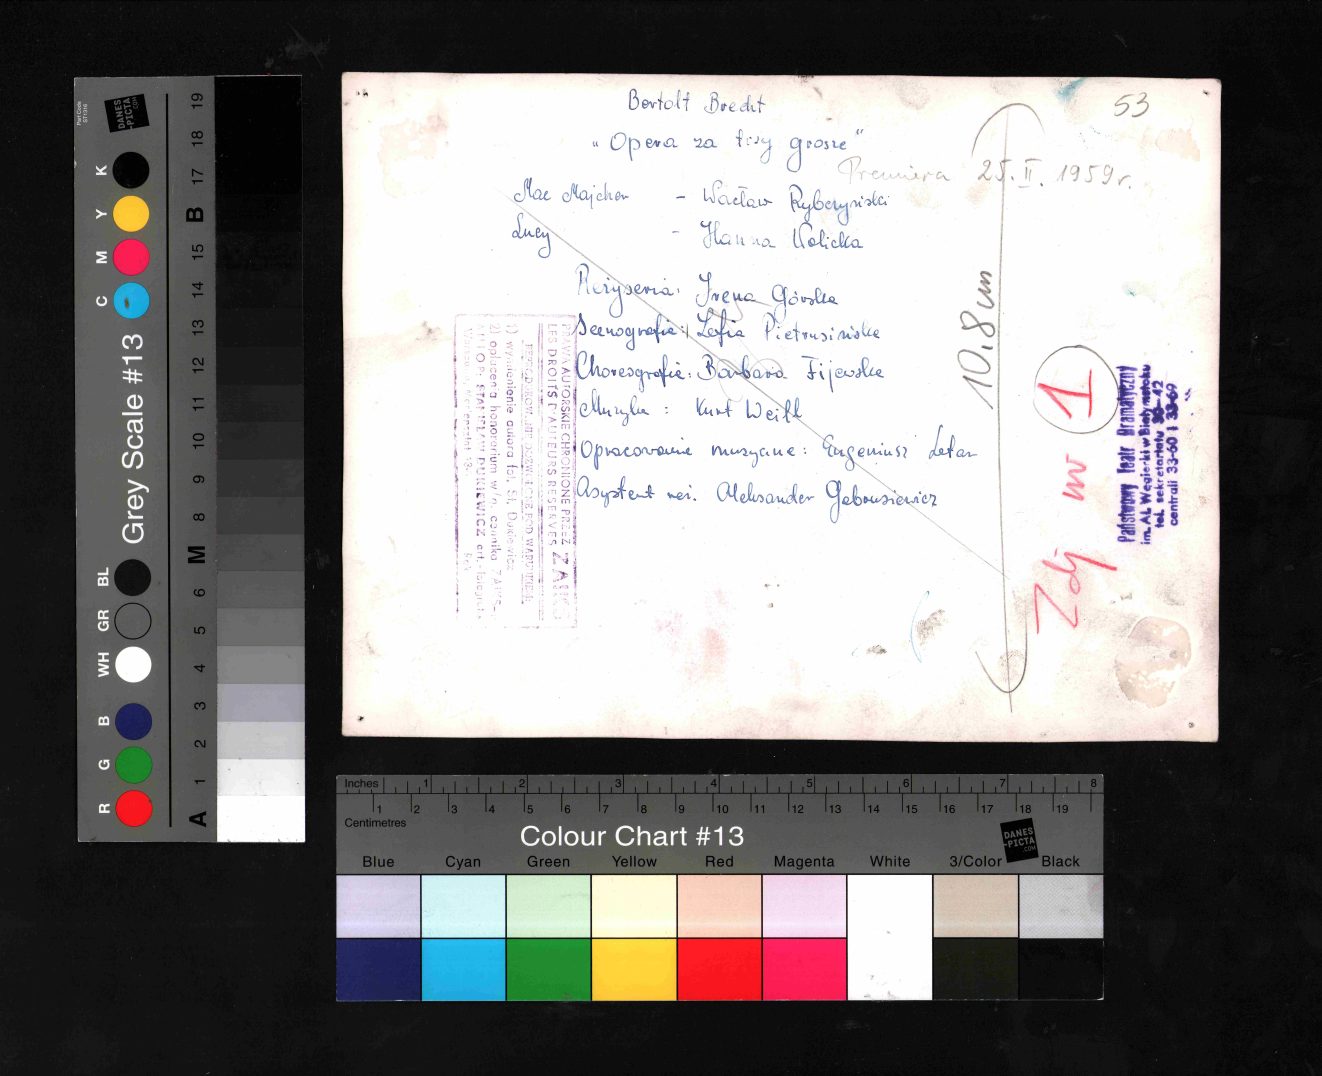 53
Bertolt Brecht
„Opera za trzy grosze"
Premiera 25.II.1959r.
Mac Majcher - Wacław Rybczyński
Lucy - Hanna Kolicka
Reżyseria: Irena Górska
Scenografia: Zofia Pietrusińska
Choreografia: Barbara Fijewska
Muzyka: Kurt Weill
Opracowanie muzyczne: Eugeniusz
Asystent reż. Aleksander Gąbrusiewicz
10.8 cm
Zdj nr 1
Państwowy Teatr Dramatyczny
im. Al. Węgierki w Białymstoku
tel. sekretariatu 30-42
centrali 33-60 i 33-69
PRAWA AUTORSKIE CHRONIONE PRZEZ ZAIKS
LES DROITS D'AUTEURS RESERVES
1) wymienienie autora fot.
2) opłacenia honorarium w/g cennika
Grey Scale #13
Part Code
DANES
-PICTA
.COM
A 1 2 3 4 5 6 M 8 9 10 11 12 13 14 15 B 17 18 19
R G B WH GR BL C M Y K
Inches 1 2 3 4 5 6 7 8
1 2 3 4 5 6 7 8 9 10 11 12 13 14 15 16 17 18 19
Centimetres
Colour Chart #13
DANES
-PICTA
.COM
Blue Cyan Green Yellow Red Magenta White 3/Color Black